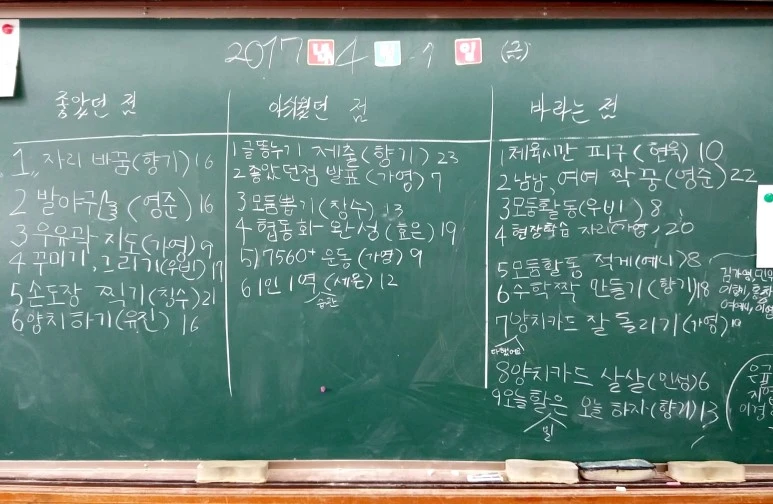 2017 년 4 월 1 일 (금)
좋았던 점
1, 자리 바꿈(향기) 16
2 발야구 (영준) 16
3 우유곽 지도(가영) 9
4 꾸미기, 그리기(우빈) 17
5 손도장 찍기(창수) 21
6 양치하기(유진) 16
아쉬웠던 점
1 글똥누기 제출(향기) 23
2 좋았던점 발표(가영) 7
3 모둠뽑기(창수) 13
4 협동화 완성(효은) 19
5) 7560+ 운동(가영) 9
6 1인 1역(세은) 12
습관
바라는 점
1 체육시간 피구(현욱) 10
2 남남, 여여 짝꿍(영준) 22
3 모둠활동(우빈) 8
4 현장학습 자리(가영) 20
5 모둠활동 적게(예니) 8
6 수학짝 만들기(향기) 18
7 양치카드 잘 돌리기(가영) 19
다했어요
8 양치카드 살살(민성) 6
9 오늘할은 오늘 하자(향기) 13
일